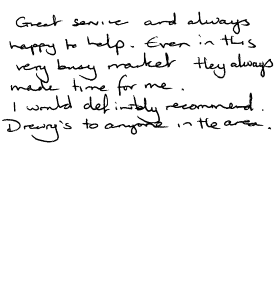 Great service and always
happy to help. Even in this
very busy market they always
made time for me.
I would definitely recommend.
Drewry's to anyone in the area.